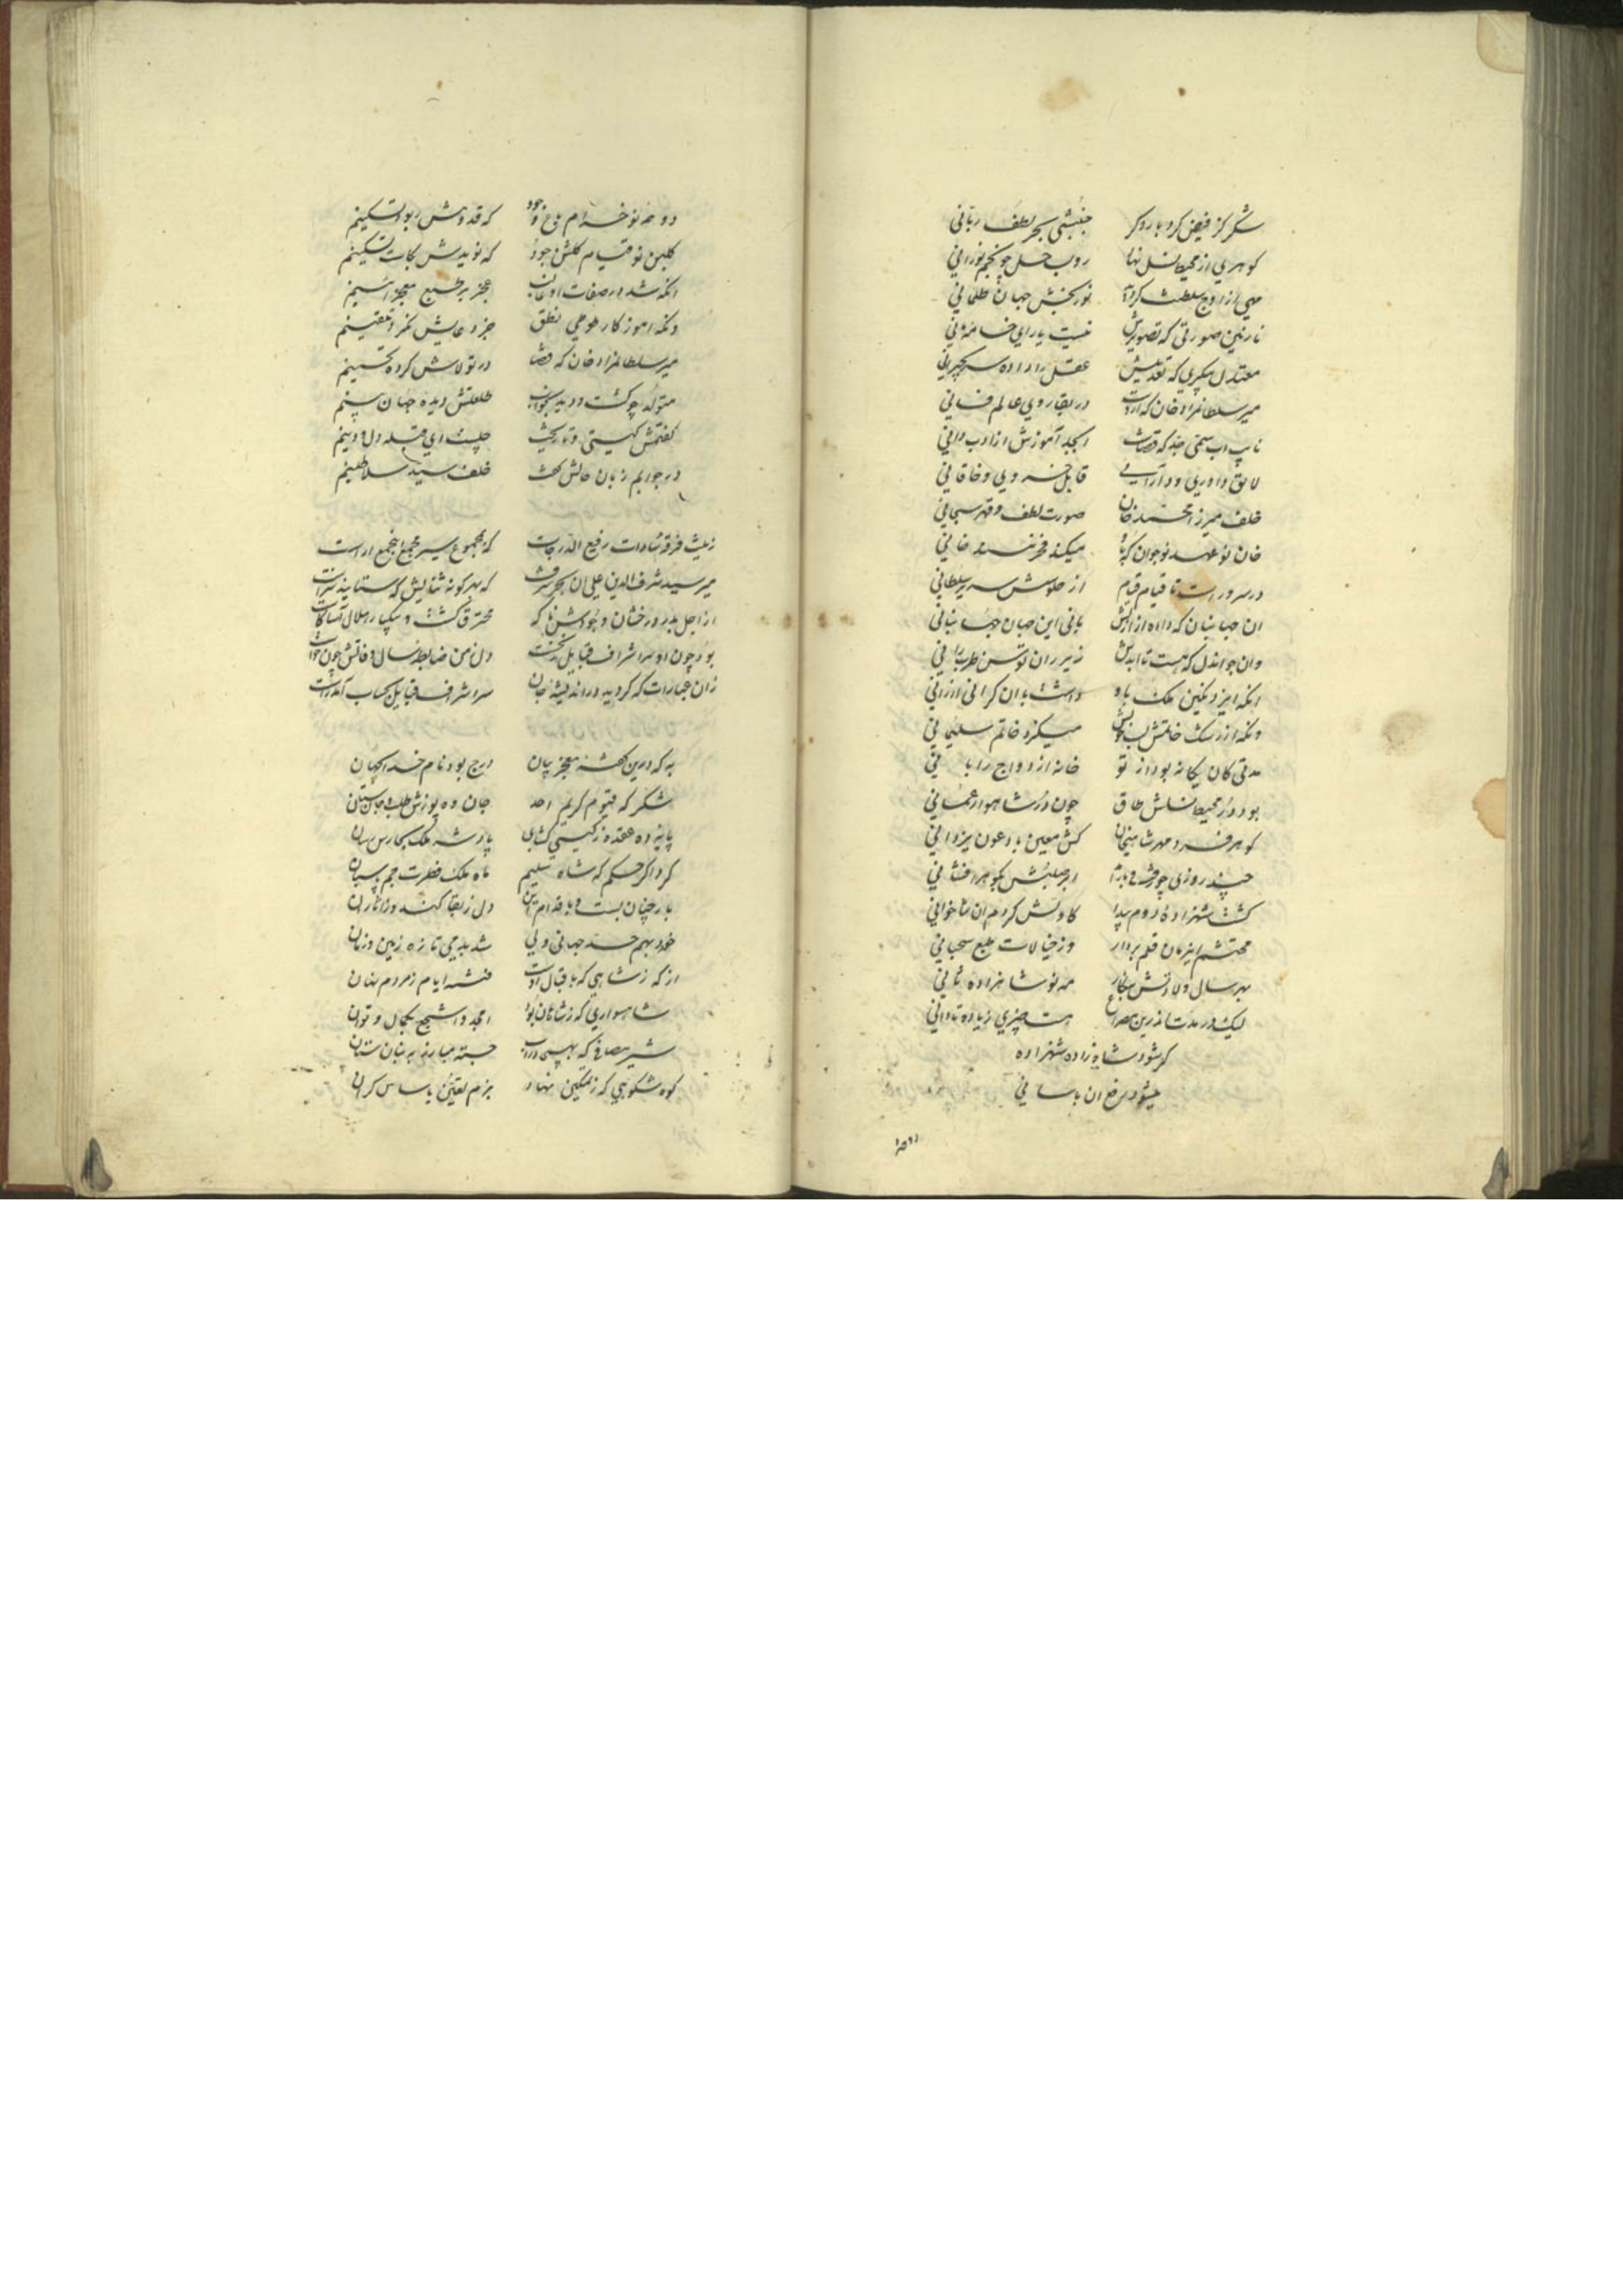 شکر کز فیض کردبار دکر جنبشی بحر لطف ربانی
کوهری از محیط نسل نهاد رو بساحل چو نجم نورانی
مهی از اوج سلطنت کردید نور بخش جهان ظلمانی
نازنین صورتی که تصویرش نیست یارای خامهٔ مانی
معتدل پیکری که تعدیلش عقل را داده سر بحیرانی
میر سلطانمراد خان که ازوست در بقا روی عالم فانی
نایب اب سمی جد که قضاست ابجد آموزش از ادب دانی
لایق داوری و دارایی قابل خسروی و خاقانی
خلف میرزا محمد خان صورت لطف و قهر سبحانی
خان نوعهد نوجوان که باو میکند فخر مسند خانی
در سرور است تا قیام قیام از جلوسش سریر سلطانی
ان جهانبان که داد از ازلش بانی این جهان جهانبانی
وان جواندل که هست تا ابدش زیر ران توسن طرب رانی
انکه ایزد نکین ملک باو داشت بان کرانی ارزانی
ونکه از رشک خاتمش لب خویش میکزد خاتم سلیمانی
مدتی کان یکانه بود از تو خانه ازدواج را بانی
بود در محیط نسلش طاق چون در شاهوار عمانی
کوهر فرد مهر شاهیخان کش معین باد عون یزدانی
چند روزی چو رفت و باز آمد ابر صلبش بکوهر افشانی
کشت شهزاده دوم پیدا کاولش کردم ان ثناخوانی
محتشم این زمان قلم بردار وز خیالات طبع سحبانی
بهر سال ولادتش بنکار مه نو شاهزاده ثانی
لیک در مدت از این مصراع هست چیزی زیاده تا دانی
کر شود شاه زاده شهزاده
میشود رفع ان باسانی
دوحهٔ نو خرام باغ وجود که قدومش ربود تسکینم
کلبن نو قیام کلشن جود که نویدش نجات تسکینم
انکه شد در صفات او غالب عجز بر طبع معجز آئینم
ونکه اموزکار طوطی نطق جز دعایش نکرد تلقینم
میر سلطانمراد خان که قضا در تولاش کرده تحسینم
متولد چو کشت و دید بخواب طلعتش دیده جهان بینم
کفتمش کیستی و تاریخت چیست ای قبله دل و دینم
در جوابم زبان حالش کفت خلف سید سلاطینم
زینت فرقه سادات رفیع الدرجات که مجموع سیر مجمع انجمع اراست
میر سید شرف الدین علی ان بحر شرف که بهر کونه ثنایش که ستایند سزاست
از اجل بدر درخشان وجودش ناکه محترق کشت و بیکبار هلال آسا کاست
بود چون او سر اشراف قبایل بدرست دل ز من ضابطه سال وفاتش چون خواست
زان عبارات که کردید در اندیشه عیان سر اشراف قبایل بحساب آمد راست
به که درین کهنه معجز بیان درج بود نام خدای جهان
شکر که قیوم کریم احد جان ده پوزش طلب و جان ستان
پایه ده عقده ز کیتی کشای پادشه ملک بحارس رسان
کرد اکر حکم که شاه سلیم ماه ملک فطرت جم پاسبان
بار چنان بست و باقدام این دل ز بقا کند و ز اثار ان
خود بهم حسد جهانی ولی شد بدمی تازه زمین و زمان
از که ز شاهی که باقبال اوست فتنه ایام ز مردم نهان
شاهسواری که ز شاهان بود امجد و اشجع بکمال و توان
شیر مصافی که بهیجا در اب جسته مبارز به بنان سنان
کوه شکوهی که ز تمکین نهاد بزم یقین پاساس کران